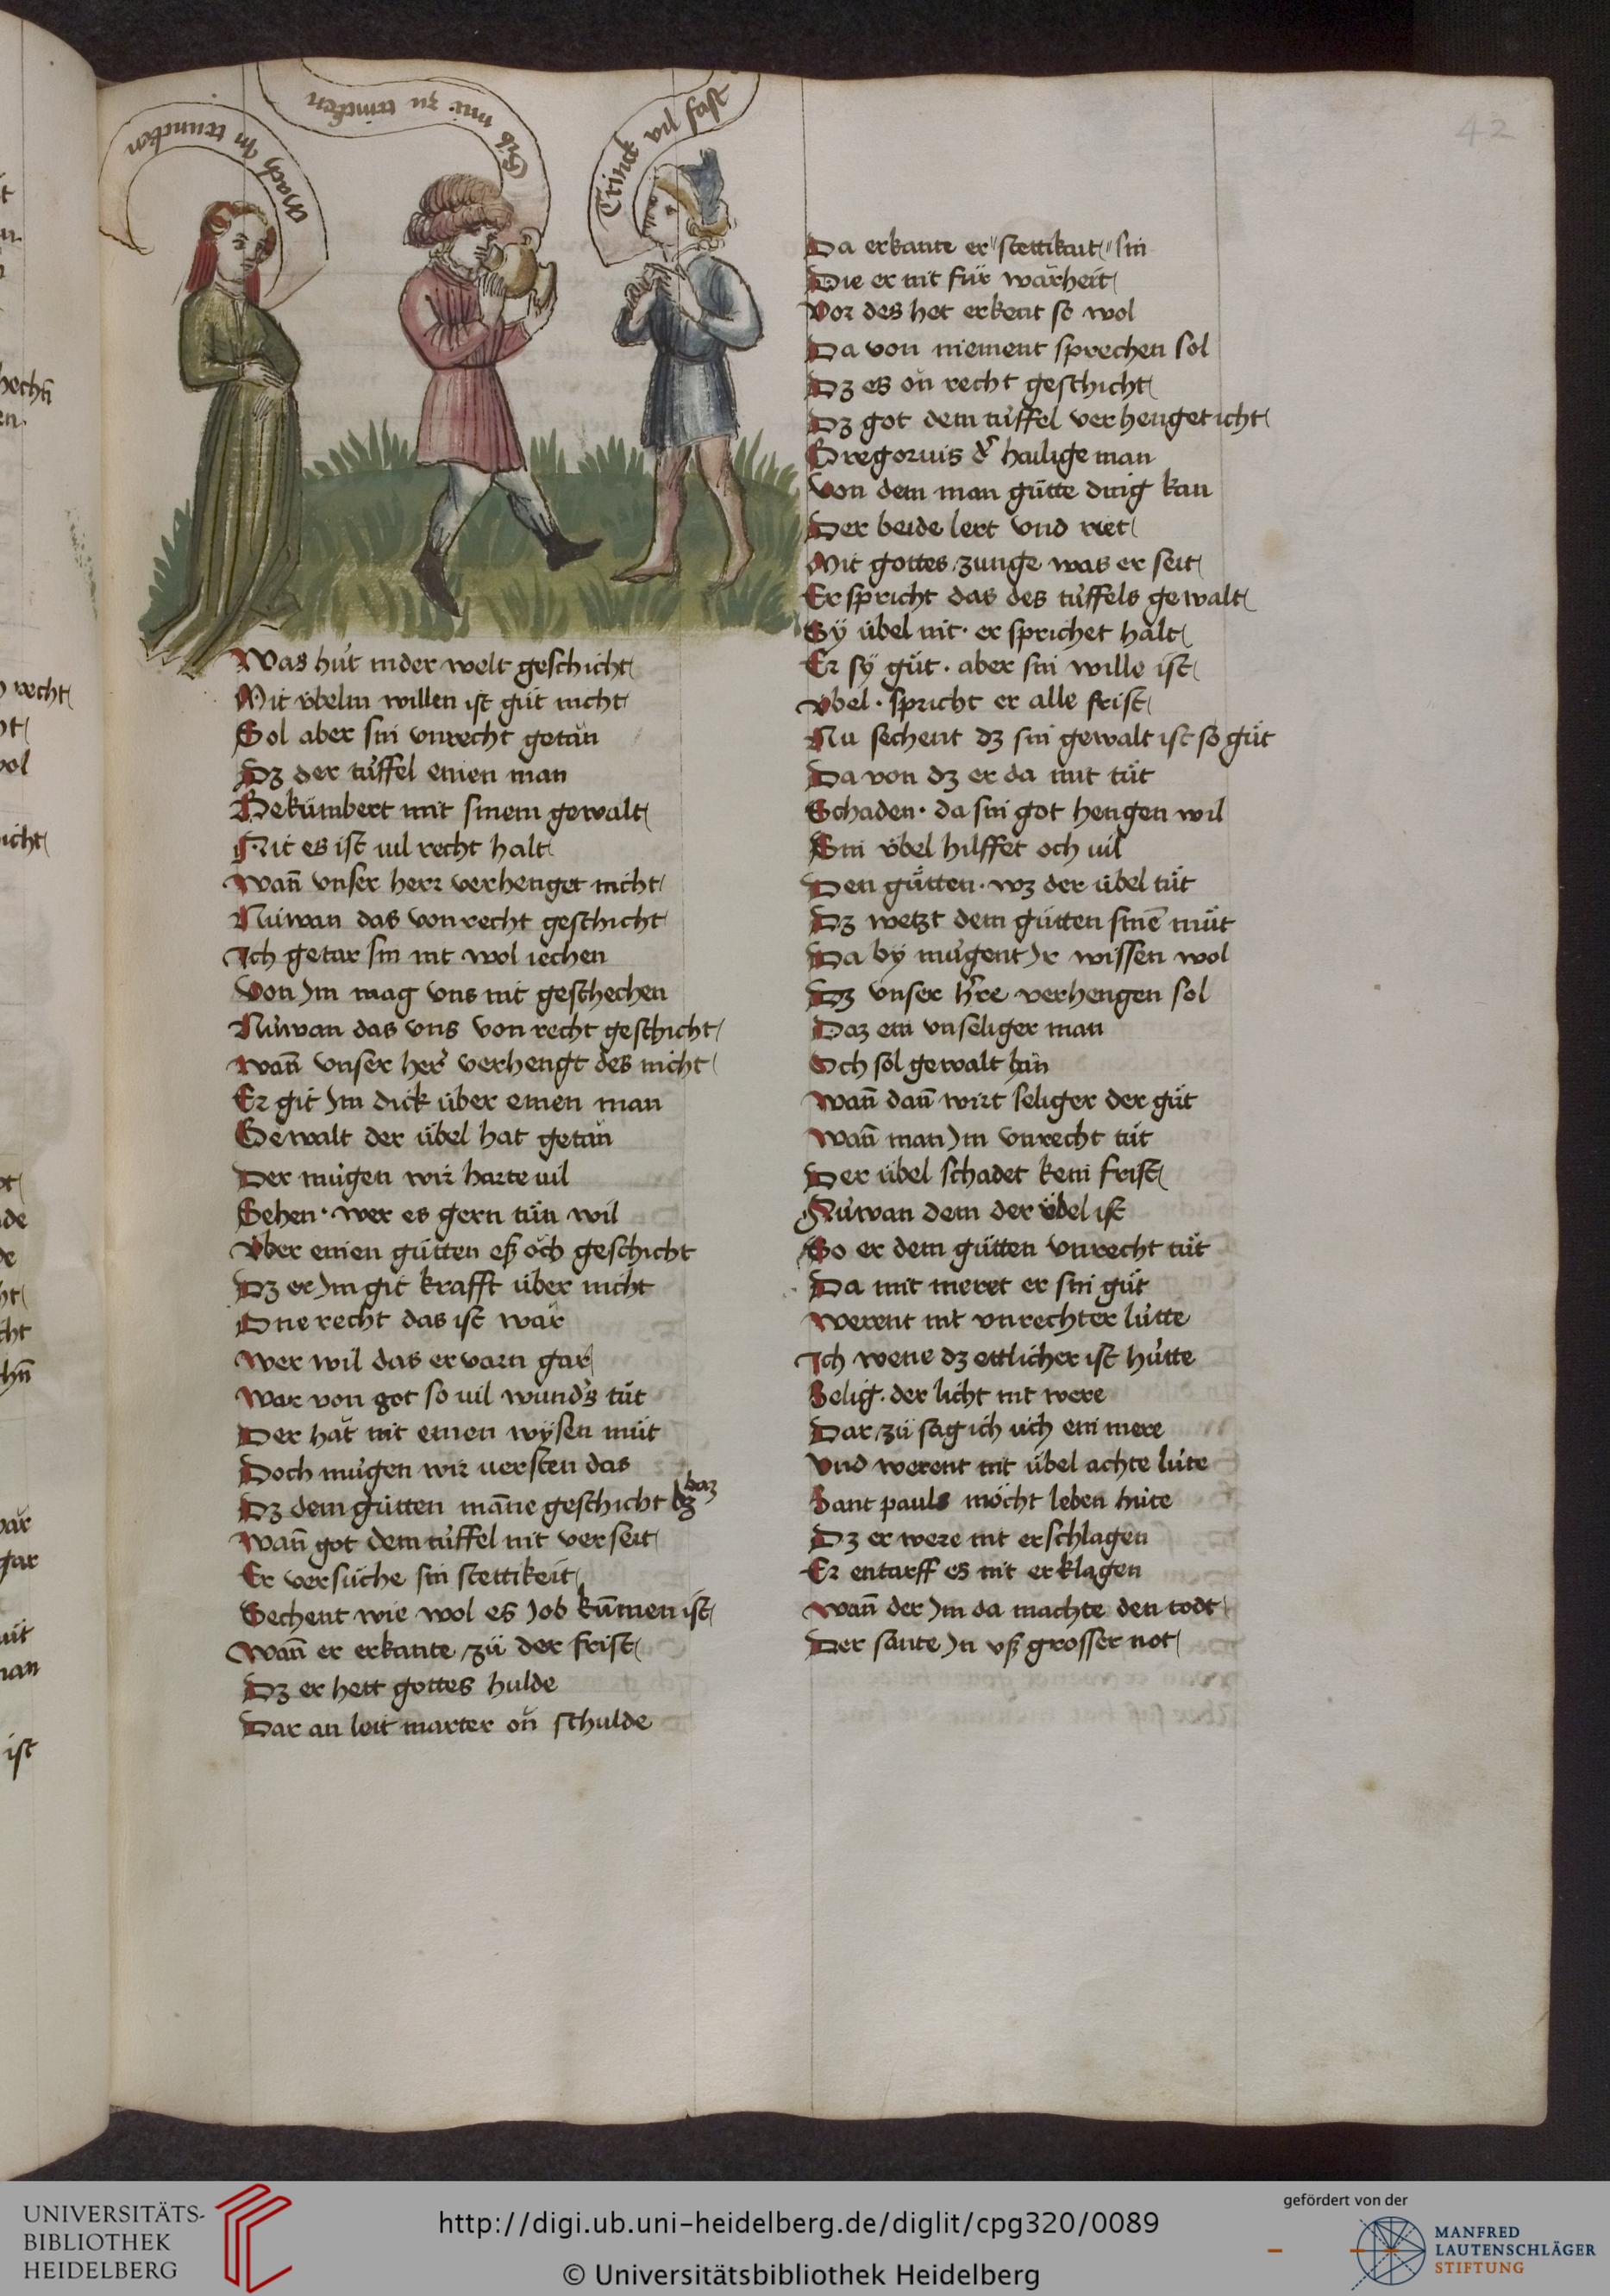 Mach Jn truncken
Gib mir zu trincken
Trinck vil fast
42
Was hút inder welt geschicht
Mit v́belm willen ist gůt nicht
Sol aber sin vnrecht getan
Dz der túffel einen man
Bekúmbert mit sinem gewalt
Nit es ist uil recht halt
Wan̄ vnser herr verhenget nicht
Núwan das von recht geschicht
Ich getar sin nit wol iechen
Von Jm mag vns nit geschechen
Núwan das vns von recht geschicht
Wan̄ vnser her verhengt des nicht
Er git Jm dick úber einen man
Gewalt der úbel hat getan
Der múgen wir harte uil
Sehen · wer es gern tůn wil
Vber einen gůtten eß och geschicht
Dz er Jm git krafft úber nicht
One recht das ist war
Wer wil das ervarn gar
War von got so uil wunders tůt
Der hat nit einen wysen můt
Doch múgen wir versten das
Dz dem gůtten man̄e geschicht dz baz
Wan̄ got dem túffel nit verseit
Er versůche sin stettikeit
Sechent wie wol es Job kum̄en ist
Wan̄ er erkante zů der frist
Dz er hett gottes hulde
Dar an leit marter on schulde
Da erkante er stettikait sin
Die er nit fúr warheit
Vor des het erkent so wol
Da von niement sprechen sol
Dz es on recht geschicht
Dz got dem túffel verhenget icht
Gregorius der hailige man
Von dem man gůtte ding kan
Der beide lert vnd riet
Mit gottes zunge was er seit
Er spricht das des túffels gewalt
Sy úbel nit · er sprichet halt
Er sy gůt · aber sin wille ist
Vbel · spricht er alle frist
Nu sechent dz sin gewalt ist so gůt
Da von dz er da mit tůt
Schaden · da sin got hengen wil
Sin v́bel hilffet och uil
Den gůtten · wz der úbel tůt
Dz wetzt dem gůtten sinē můt
Da by múgent Jr wissen wol
Dz vnser hre verhengen sol
Daz ein vnseliger man
Och sol gewalt han
Wan̄ dan̄ wirt seliger der gůt
Wan̄ man Jm vnrecht tůt
Der úbel schadet kein frist
Núwan dem der v́bel ist
So er dem gůtten vnrecht tůt
Da mit meret er sin gůt
Werent nit vnrechter lútte
Ich wene dz ettlicher ist hútte
Selig · der licht nit were
Dar zů sag ich úch ein mere
Vnd werent nit úbel achte lúte
Sant pauls möcht leben húte
Dz er were nit erschlagen
Er entarff es nit erklagen
Wan̄ der Jm da machte den todt
Der sante Jn vß grosser not
UNIVERSITÄTS-
BIBLIOTHEK
HEIDELBERG
http://digi.ub.uni-heidelberg.de/diglit/cpg320/0089
© Universitätsbibliothek Heidelberg
gefördert von der
MANFRED
LAUTENSCHLÄGER
STIFTUNG